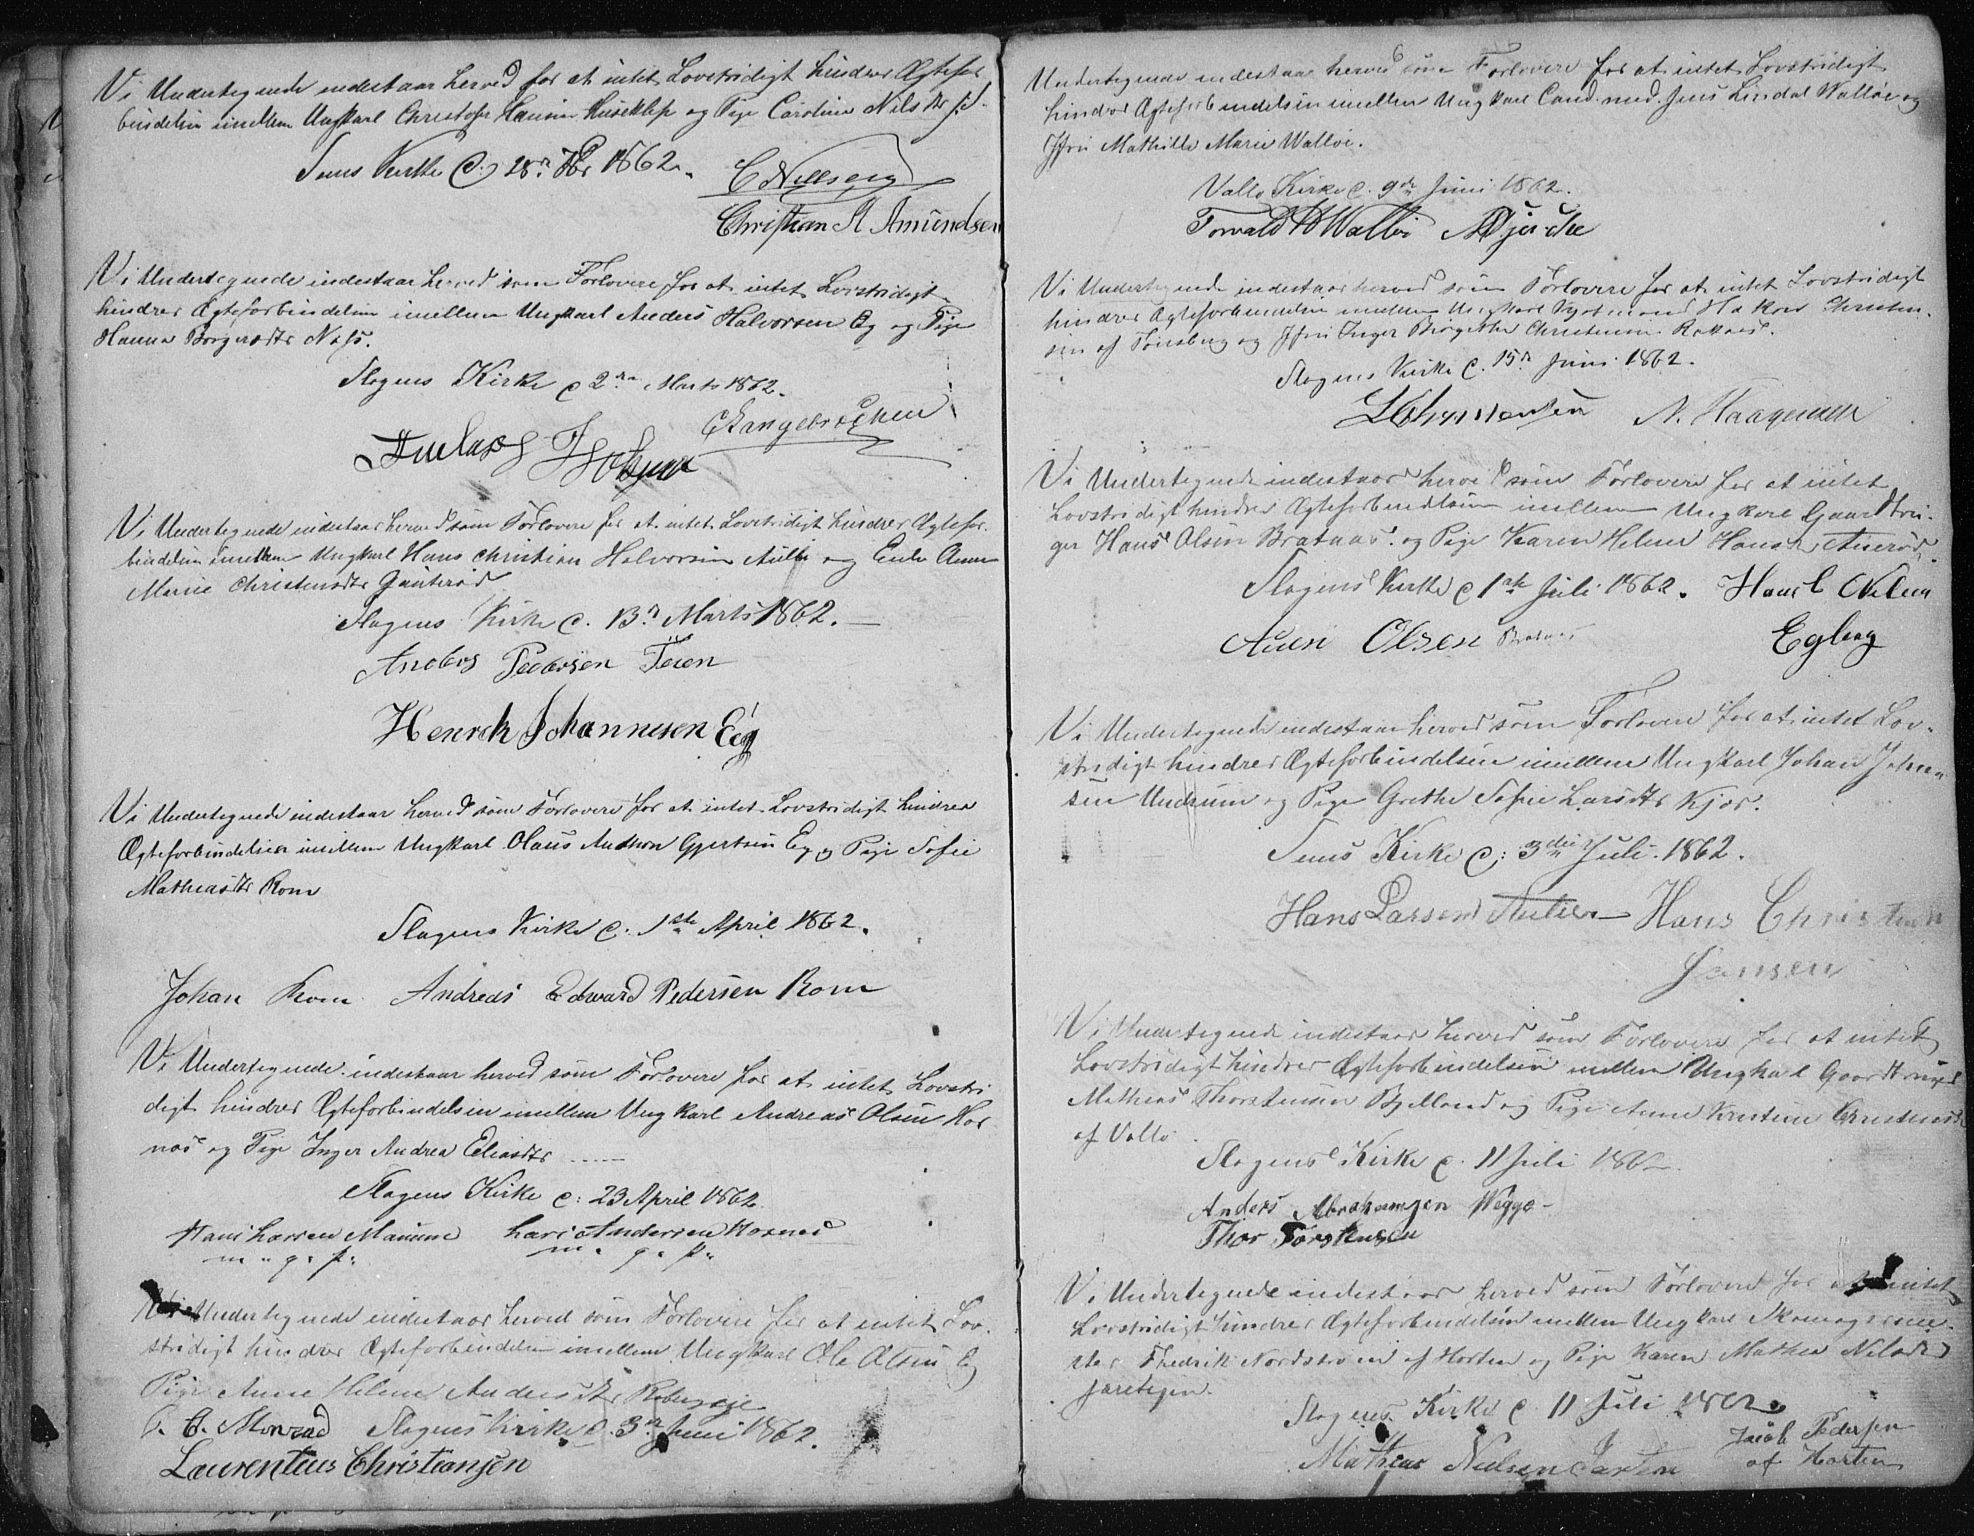 Vi Undertegnede indestaar herved for at intet Lovstridigt hindrer Ægtefor
bindelsen imellem Ungkarl Christofer Hansen Huseklep og Pige Caroline Nilsdtr
Sems Kirke d. 28n 1862.
C Nillsen
Christian A Amundsen
Vi Undertegnede indestaar herved som Forlovere for at intet Lovstridigt
hindrer Ægteforbindelsen imellem Ungkarl Anders Halvorsen Eg og Pige
Hanna Borgersdtr Næss.
Slagens Kirke d 2den Marts 1862.
Vi Undertegnede indestaar herved som Forlovere for at intet Lovstridigt hindrer Ægtefor
bindelsen imellem Ungkarl Hans Christian Halvorsen Aulie og Enke Anne
Marie Christensdtr Gauterød
Slagens Kirke d. 13n Marts 1862.
Anders Pedersen Teien
Henrek Johannesen Eeg
Vi Undertegnede indestaar herved som Forlovere for at intet Lovstridigt hindrer
Ægteforbindelsen imellem Ungkarl Olaus Anthon Gjertsen Eg og Pige Sofie
Mathiasdtr Rom
Slagens Kirke d. 1ste April 1862.
Johan Rom Andreas Edward Pedersen Rom
Vi Undertegnede indestaar herved som Forlovere for at intet Lovstri
digt hindrer Ægteforbindelsen imellem Ungkarl Andreas Olsen Hor
næs og Pige Inger Andrea Eliasdtr
Slagens Kirke d: 23 April 1862
Hans Larsen Lars Andersen Hornes
m. g. p. m. g. p.
Vi Undertegnede indestaar herved som Forlovere for at intet Lov
stridigt hindrer Ægteforbindelsen imellem Ungkarl Ole Olsen Eg
Pige Anne Helene Andersdtr
Monrad Slagens Kirke d. 3n Juni 1862.
Laurentius Christiansen
Undertegnede indestaar herved som Forlovere for at intet Lovstridigt
hindrer Ægteforbindelsen imellem Ungkarl Cand. med. Jens Lindal Walløe og
Jfru Mathilde Marie Walløe.
Vallø Kirke d. 9de Juni 1862.
Torvald Walløe
Vi Undertegnede indestaar herved som Forlovere for at intet Lovstridigt
hindrer Ægteforbindelsen imellem Ungkarl Kjøbmand Hakon Christen
sen af Tønsberg og Jfru Inger Birgitte Christensen Rakaas.
Slagens Kirke d. 15n Juni 1862.
Christensen N. Haagensen
Vi Undertegnede indestaar herved som Forlovere for at intet
Lovstridigt hindrer Ægteforbindelsen imellem Ungkarl Gaardbru
ger Hans Olsen Brataas og Pige Karen Helene Hansdtr
Slagens Kirke d 1ste Juli 1862. Hans C Nilsen
Olsen Egberg
Vi Undertegnede indestaar herved som Forlovere for at intet Lov
stridigt hindrer Ægteforbindelsen imellem Ungkarl Johan Johan
sen Undrum og Pige Grethe Sofie Larsdtr Kjær.
Sems Kirke d: 3die Juli. 1862.
Hans Larsen Aulie Hans Christian
Jansen
Vi Undertegnede indestaar herved som Forlovere for at intet
Lovstridigt hindrer Ægteforbindelsen imellem Ungkarl Gaardbruger
Mathias Thorstensen Bjelland og Pige Anne Kirstine Christensdtr
af Vallø
Slagens Kirke d. 11 Juli
Anders Abrahamsen Wegge
Thor Torstensen
Vi Undertegnede indestaar herved som Forlovere for at intet
Lovstridigt hindrer Ægteforbindelsen imellem Ungkarl Skomagerme
ster Fredrik Nordstrøm af Horten og Pige Karen Mathea Nilsdtr
Jarteigen.
Slagens Kirke d. 11 Juli 1862.
Mathias Nielsen Jacob Pedersen
af Horten